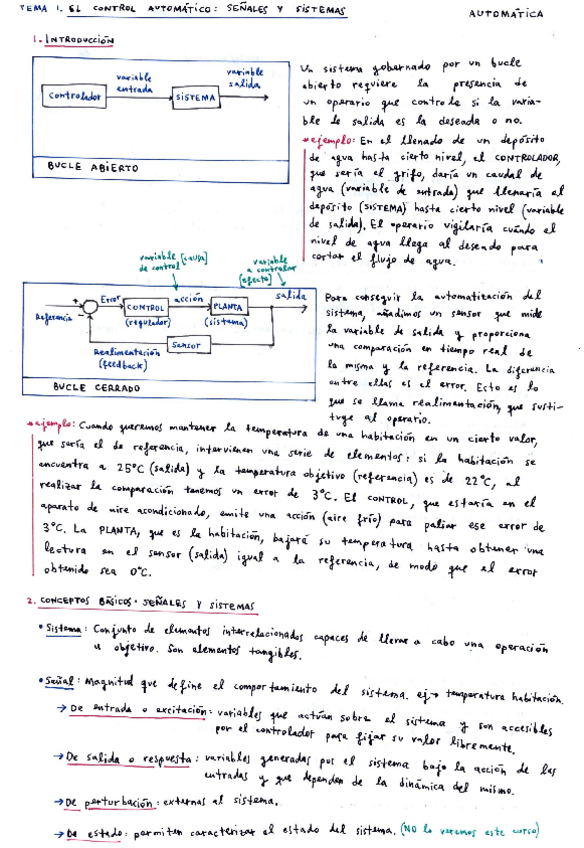 TEMA 1. EL CONTROL AUTOMÁTICO: SEÑALES Y SISTEMAS
AUTOMÁTICA
1. INTRODUCCIÓN
controlador
variable entrada
SISTEMA
variable salida
BUCLE ABIERTO
Un sistema gobernado por un bucle
abierto requiere la presencia de
un operario que controle si la varia-
ble de salida es la deseada o no.
ejemplo: En el llenado de un depósito
de agua hasta cierto nivel, el CONTROLADOR,
que sería el grifo, daría un caudal de
agua (variable de entrada) que llenaría el
depósito (SISTEMA) hasta cierto nivel (variable
de salida). El operario vigilaría cuándo el
nivel de agua llega al deseado para
cortar el flujo de agua.
variable [causa]
de control
variable
a controlar
[efecto]
Referencia
+
-
Error
CONTROL
(regulador)
acción
PLANTA
(sistema)
salida
Sensor
Realimentación
(feedback)
BUCLE CERRADO
Para conseguir la automatización del
sistema, añadimos un sensor que mide
la variable de salida y proporciona
una comparación en tiempo real de
la misma y la referencia. La diferencia
entre ellas es el error. Esto es lo
que se llama realimentación, que susti-
tuye al operario.
ejemplo: Cuando queremos mantener la temperatura de una habitación en un cierto valor,
que sería el de referencia, intervienen una serie de elementos: si la habitación se
encuentra a 25°C (salida) y la temperatura objetivo (referencia) es de 22°C, al
realizar la comparación tenemos un error de 3°C. El CONTROL, que estaría en el
aparato de aire acondicionado, emite una acción (aire frío) para paliar ese error de
3°C. La PLANTA, que es la habitación, bajará su temperatura hasta obtener una
lectura en el sensor (salida) igual a la referencia, de modo que el error
obtenido sea 0°C.
2. CONCEPTOS BÁSICOS. SEÑALES Y SISTEMAS
• Sistema: Conjunto de elementos interrelacionados capaces de llevar a cabo una operación
u objetivo. Son elementos tangibles.
• Señal: Magnitud que define el comportamiento del sistema. ej → temperatura habitación.
→ De entrada o excitación: variables que actúan sobre el sistema y son accesibles
por el controlador para fijar su valor libremente.
→ De salida o respuesta: variables generadas por el sistema bajo la acción de las
entradas y que dependen de la dinámica del mismo.
→ De perturbación: externas al sistema.
→ De estado: permiten caracterizar el estado del sistema. (NO lo veremos este curso)